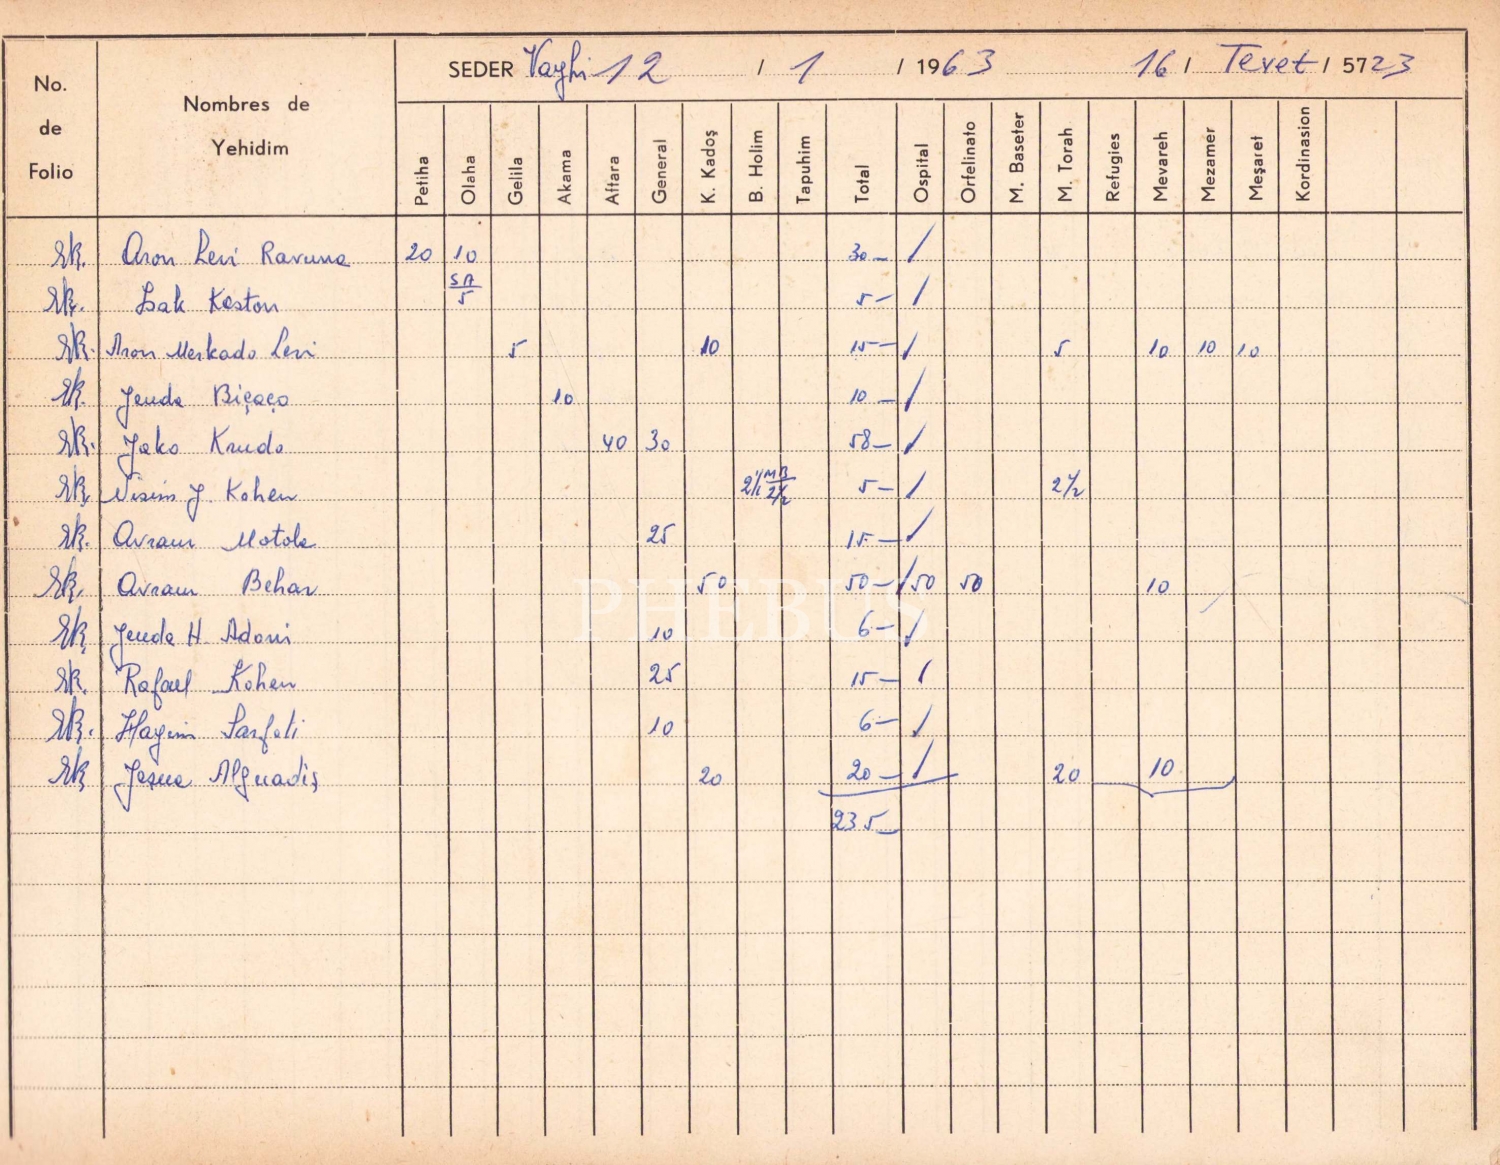 SEDER Vayhi 12 / 1 / 1963 16 / Tevet / 5723
No. de Folio
Nombres de Yehidim
Petiha Olaha Gelila Akama Aftara General K. Kadoş B. Holim Tapuhim Total Ospital Orfelinato M. Baseter M. Torah Refugies Mevareh Mezamer Meşaret Kordinasion
Aron Levi Ravuna 20 10 30-
Isak Keston SA 5 5-
Aron Merkado Levi 5 10 15- 5 10 10 10
Jeuda Biçaço 10 10-
Jako Krudo 40 30 58-
Nisim J. Kohen 2½ MB 2½ 5- 2½
Avram Motola 25 15-
Avram Behar 50 50- 50 50 10
PHEBUS
Jeuda H Adoni 10 6-
Rafael Kohen 25 15-
Hayim Sarfati 10 6-
Jeşua Alguadiş 20 20- 20 10
235-